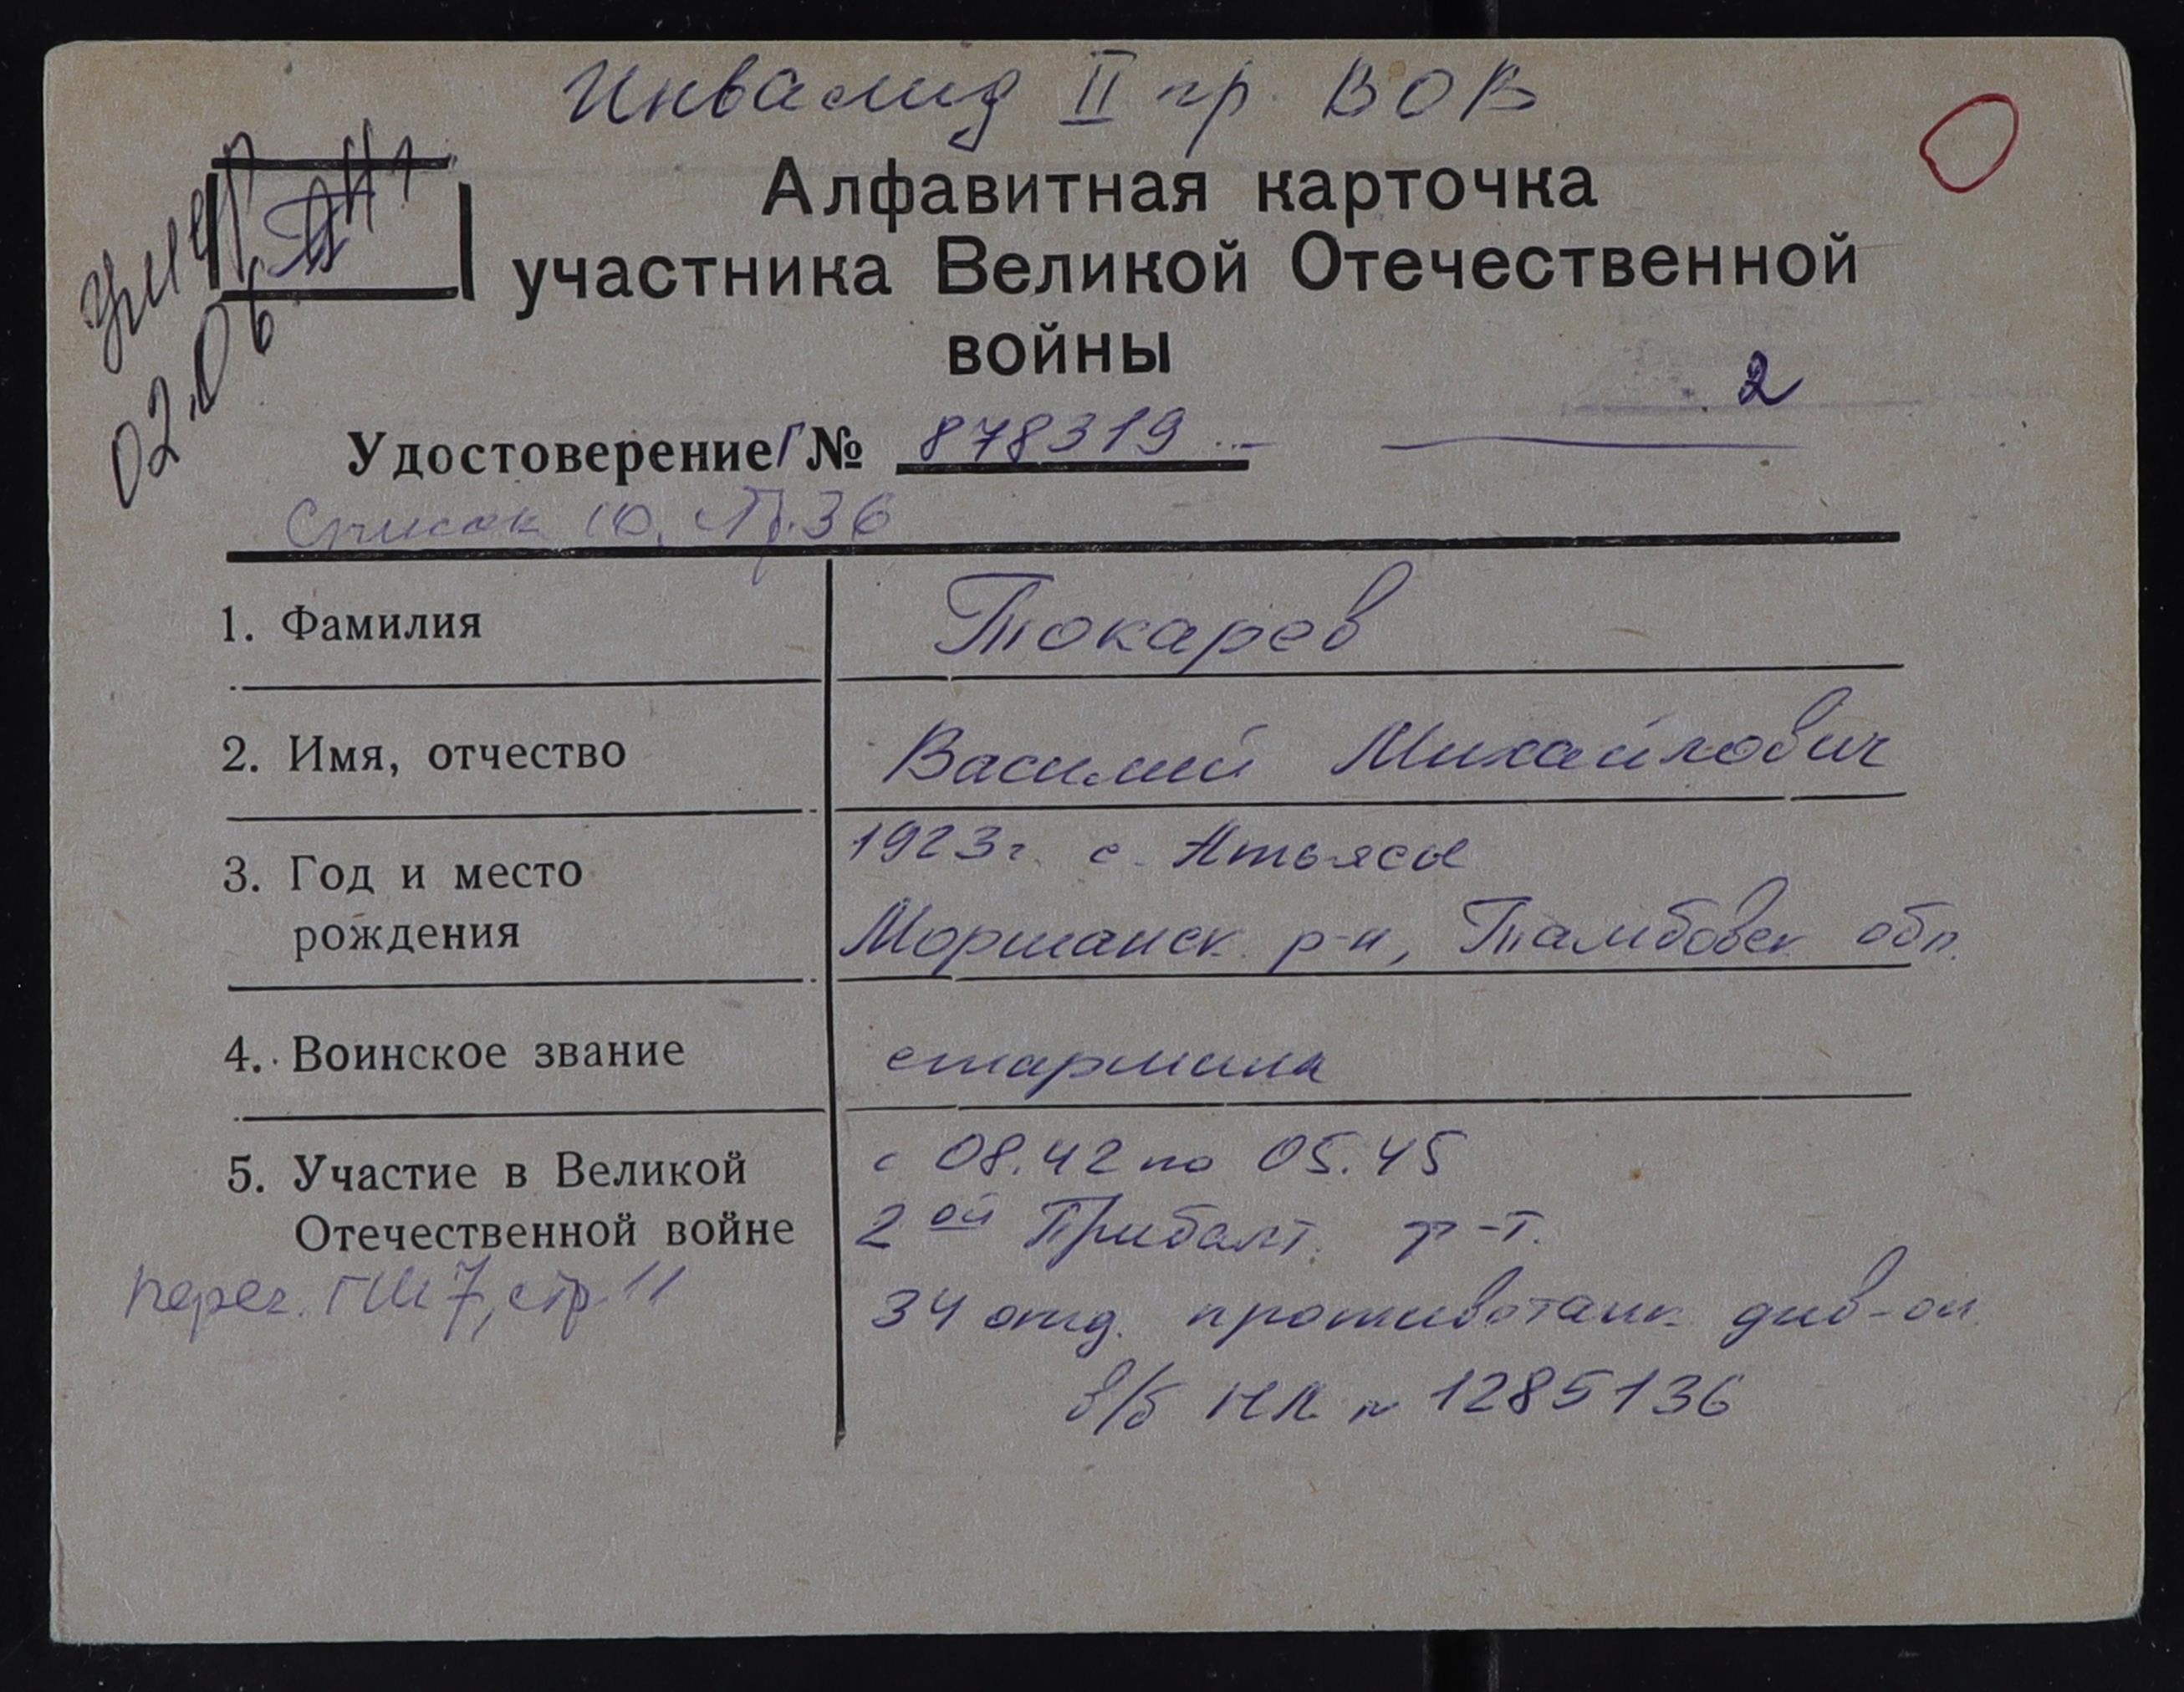 Инвалид II гр. ВОВ
Умер
02.06
Алфавитная карточка
участника Великой Отечественной
войны
2
Удостоверение Г № 878319
Список 10. Пр. 36
1. Фамилия
Токарев
2. Имя, отчество
Василий Михайлович
3. Год и место
рождения
1923г. с. Атьясы
Моршанск р-н, Тамбовск обл.
4. Воинское звание
старшина
5. Участие в Великой
Отечественной войне
с 08.42 по 05.45
2ой Прибалт. ф-т.
34 отд. противотанк див-он
в/б НЛ № 1285136
Перег. ГШ 7, стр. 11